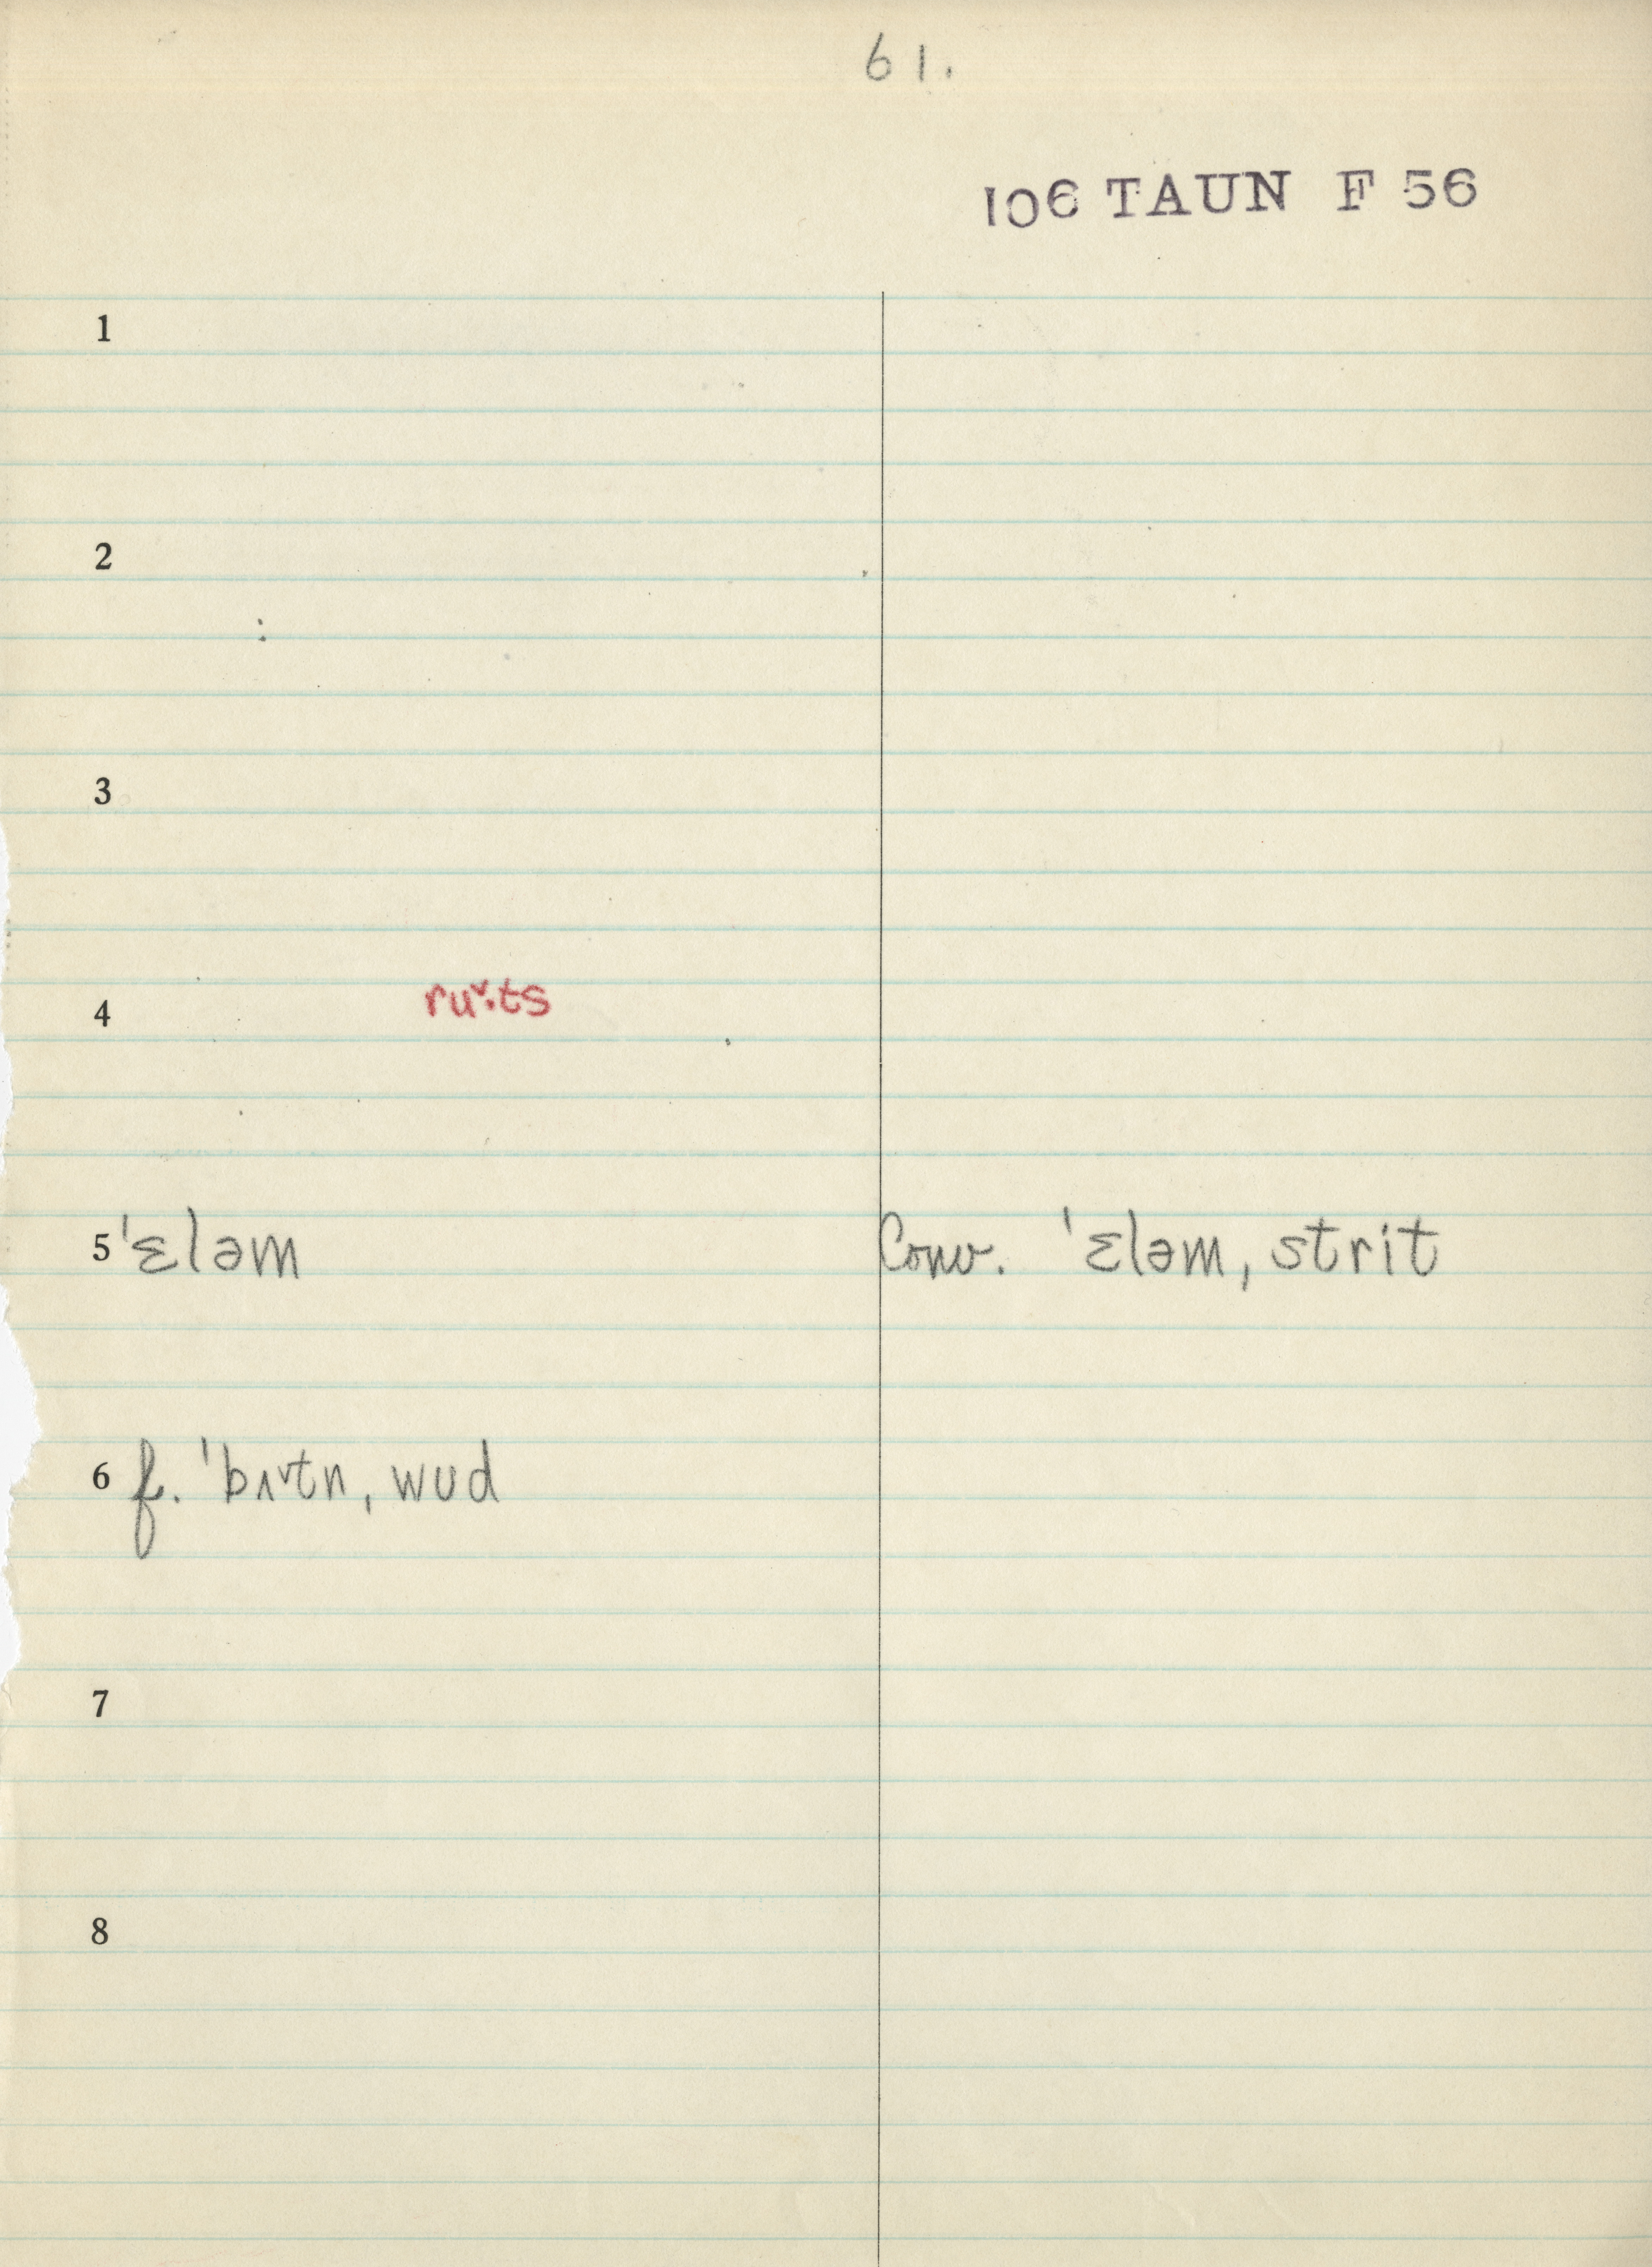 61.
106 TAUN F 56
1
2
3
4 ru˅·ts
5 ˈɛləm Conv. ˈɛləm, strit
6 f. ˈbʌ˅tn, wud
7
8